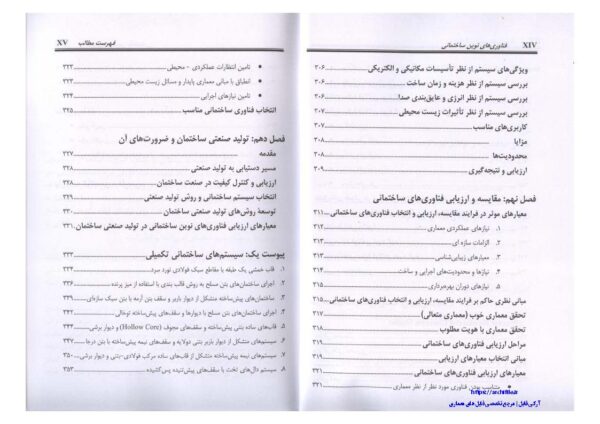 XIV فناوری‌های نوین ساختمانی
ویژگی‌های سیستم از نظر تأسیسات مکانیکی و الکتریکی ۳۰۶
بررسی سیستم از نظر هزینه و زمان ساخت ۳۰۶
بررسی سیستم از نظر انرژی و عایق‌بندی صدا ۳۰۶
بررسی سیستم از نظر تأثیرات زیست محیطی ۳۰۷
کاربری‌های مناسب ۳۰۷
مزایا ۳۰۸
محدودیت‌ها ۳۰۸
ارزیابی و نتیجه‌گیری ۳۰۹
فصل نهم: مقایسه و ارزیابی فناوری‌های ساختمانی
معیارهای موثر در فرایند مقایسه، ارزیابی و انتخاب فناوری‌های ساختمانی ۳۱۱
۱. نیازهای عملکردی معماری ۳۱۲
۲. الزامات سازه ای ۳۱۲
۳. معیارهای زیبایی‌شناسی ۳۱۳
۴. نیازها و محدودیت‌های اجرایی و ساخت ۳۱۴
۵. نیازهای دوران بهره‌برداری ۳۱۴
مبانی نظری حاکم بر فرایند مقایسه، ارزیابی و انتخاب فناوری‌های ساختمانی ۳۱۵
تحقق معماری خوب (معماری متعالی) ۳۱۷
تحقق معماری با هویت مطلوب ۳۱۸
مراحل ارزیابی فناوری‌های ساختمانی ۳۱۹
مبانی انتخاب معیارهای ارزیابی ۳۲۱
معیارهای ارزیابی فناوری‌های ساختمانی ۳۲۱
• متناسب بودن فناوری مورد نظر از نظر معماری ۳۲۱
فهرست مطالب XV
• تامین انتظارات عملکردی - محیطی ۳۲۲
• انطباق با مبانی معماری پایدار و مسائل زیست محیطی ۳۲۳
• تامین نیازهای اجرایی ۳۲۴
انتخاب فناوری ساختمانی مناسب ۳۲۵
فصل دهم: تولید صنعتی ساختمان و ضرورت‌های آن
مقدمه ۳۲۷
مسیر دستیابی به تولید صنعتی ۳۲۸
ارزیابی و کنترل کیفیت در صنعت ساختمان ۳۲۸
انتخاب سیستم ساختمانی و روش تولید صنعتی ۳۲۹
توسعهٔ روش‌های تولید صنعتی ۳۳۰
معیارهای ارزیابی فناوری‌های نوین ساختمانی در تولید صنعتی ساختمان ۳۳۱
پیوست یک: سیستم‌های ساختمانی تکمیلی ۳۳۳
۱. قاب خمشی یک طبقه با مقاطع سبک فولادی نورد سرد ۳۳۴
۲. اجرای ساختمان‌های بتن مسلح به روش قالب بندی با استفاده از میز پرنده ۳۳۶
۳. ساختمان‌های پیش‌ساخته متشکل از دیوار باربر و سقف بتن آرمه با بتن سبک سازه‌ای ۳۳۹
۴. اجرای ساختمان‌های بتن مسلح با دیوارها و سقف‌های پیش‌ساخته توخالی
۵. قاب‌های ساده بتنی پیش‌ساخته و سقف‌های مجوف (Hollow Core) و دیوار برشی ۳۴۴
۶. سیستم‌های نیمه پیش‌ساخته متشکل از دیوار باربر بتنی دولایه و سقف‌های نیمه پیش‌ساخته با بتن درجا ۳۴۷
۷. سیستم‌های نیمه پیش‌ساخته متشکل از قاب‌های ساده مرکب فولادی-بتنی و دیوار برشی ۳۵۰
۸. سیستم دال‌های تخت با سقف‌های پیش‌تنیده پس‌کشیده ۳۵۳
آرکی فایل | مرجع تخصصی فایل های معماری